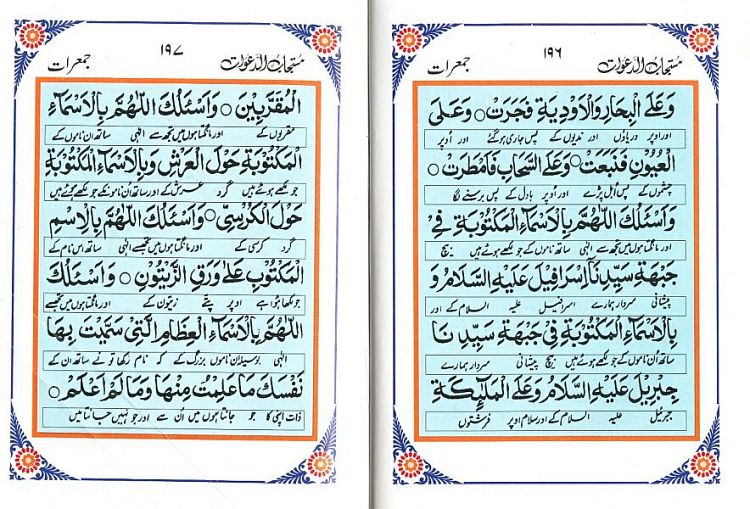 مستجاب الدعوات ۱۹۶ جمعرات
وَعَلَى الْبِحَارِ وَالْاَوْدِيَةِ فَجَرَتْ وَعَلَى
اور اوپر دریاؤں اور ندیوں کے پس جاری ہوگئے اور اوپر
الْعُيُوْنِ فَنَبَعَتْ وَعَلَى السَّحَابِ فَاَمْطَرَتْ
چشموں کے پس اُبل پڑے اور اُوپر بادل کے پس برسنے لگا
وَاَسْئَلُكَ اللّٰهُمَّ بِالْاَسْمَآءِ الْمَكْتُوْبَةِ فِيْ
اور مانگتا ہوں میں تجھ سے الٰہی ساتھ ناموں کے جو لکھے ہوئے ہیں بیچ
جَبْهَةِ سَيِّدِنَآ اِسْرَافِيْلَ عَلَيْهِ السَّلَامُ وَ
پیشانی سردار ہمارے اسرافیل علیہ السلام کے اور
بِالْاَسْمَآءِ الْمَكْتُوْبَةِ فِيْ جَبْهَةِ سَيِّدِنَا
ساتھ اُن ناموں کے جو لکھے ہوئے ہیں بیچ پیشانی سردار ہمارے
جِبْرِيْلَ عَلَيْهِ السَّلَامُ وَعَلَى الْمَلٰٓئِكَةِ
جبرئیل علیہ السلام کے اور سلام اوپر فرشتوں
مستجاب الدعوات ۱۹۷ جمعرات
الْمُقَرَّبِيْنَ وَاَسْئَلُكَ اللّٰهُمَّ بِالْاَسْمَآءِ
مقربوں کے اور مانگتا ہوں میں تجھ سے الٰہی ساتھ ان ناموں کے
الْمَكْتُوْبَةِ حَوْلَ الْعَرْشِ وَبِالْاَسْمَآءِ الْمَكْتُوْبَةِ
جو لکھے ہوئے ہیں گرد عرش کے اور ساتھ اُن ناموں کے جو لکھے ہوئے ہیں
حَوْلَ الْكُرْسِيِّ وَاَسْئَلُكَ اللّٰهُمَّ بِالْاِسْمِ
گرد کرسی کے اور مانگتا ہوں میں تجھ سے الٰہی ساتھ اس نام کے
الْمَكْتُوْبِ عَلٰى وَرَقِ الزَّيْتُوْنِ وَاَسْئَلُكَ
جو لکھا ہوا ہے اوپر پتے زیتون کے اور مانگتا ہوں میں تجھ سے
اللّٰهُمَّ بِالْاَسْمَآءِ الْعِظَامِ الَّتِيْ سَمَّيْتَ بِهَا
الٰہی بوسیلہ ان ناموں بزرگ کے کہ نام رکھا تو نے ساتھ ان کے
نَفْسَكَ مَا عَلِمْتُ مِنْهَا وَمَا لَمْ اَعْلَمْ
ذات اپنی کا جو جانتا ہوں میں اُن سے اور جو نہیں جانتا میں